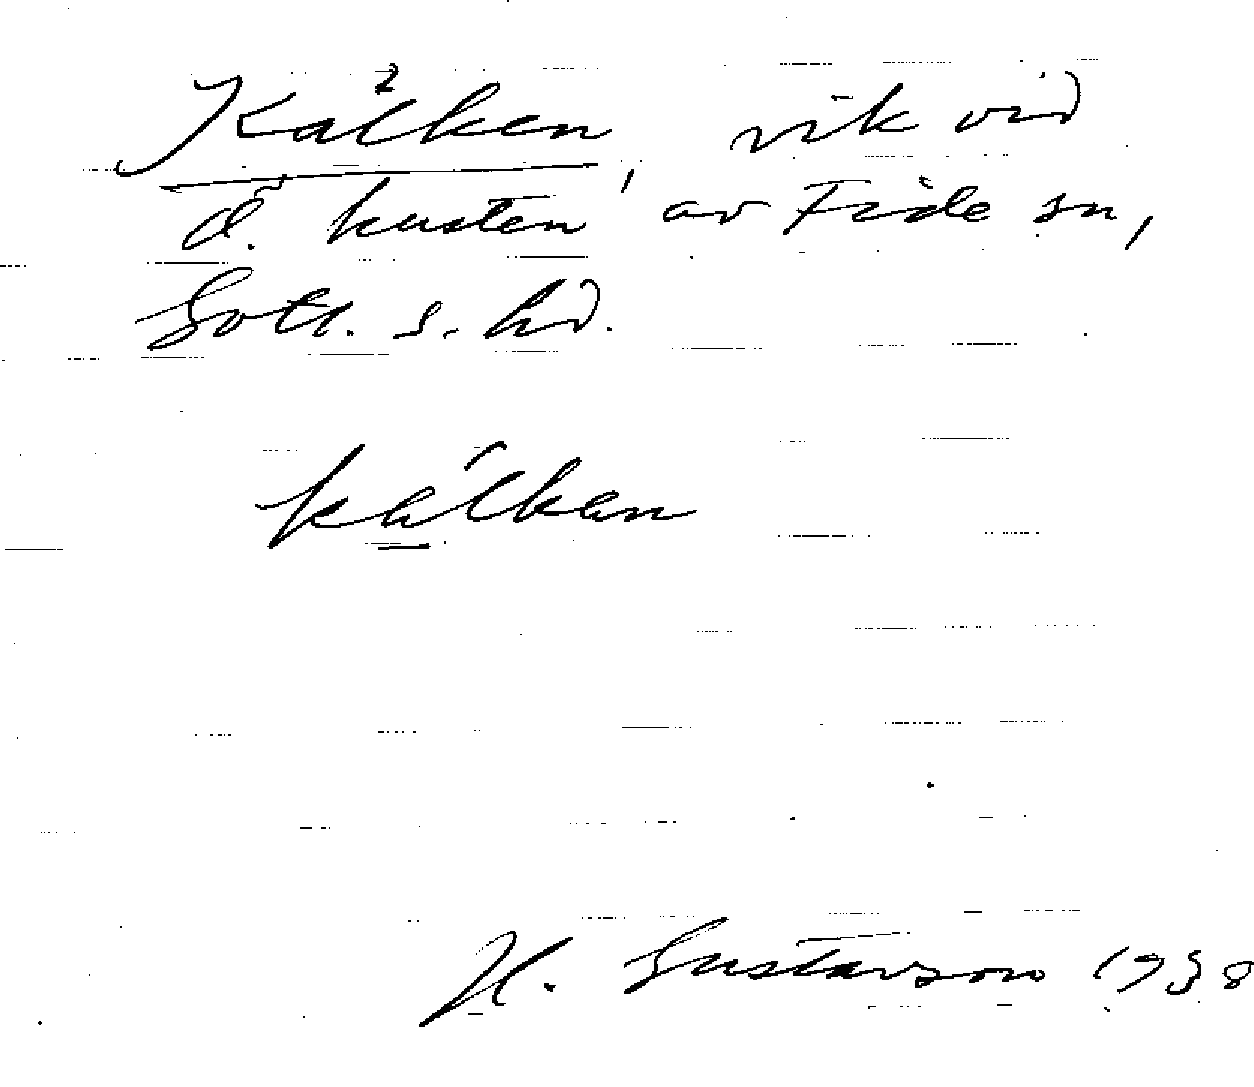 Kälken, vik vid
ö. kusten av Fide sn,
Gotl. s. hd.
kälkan
H. Gustavson 1938